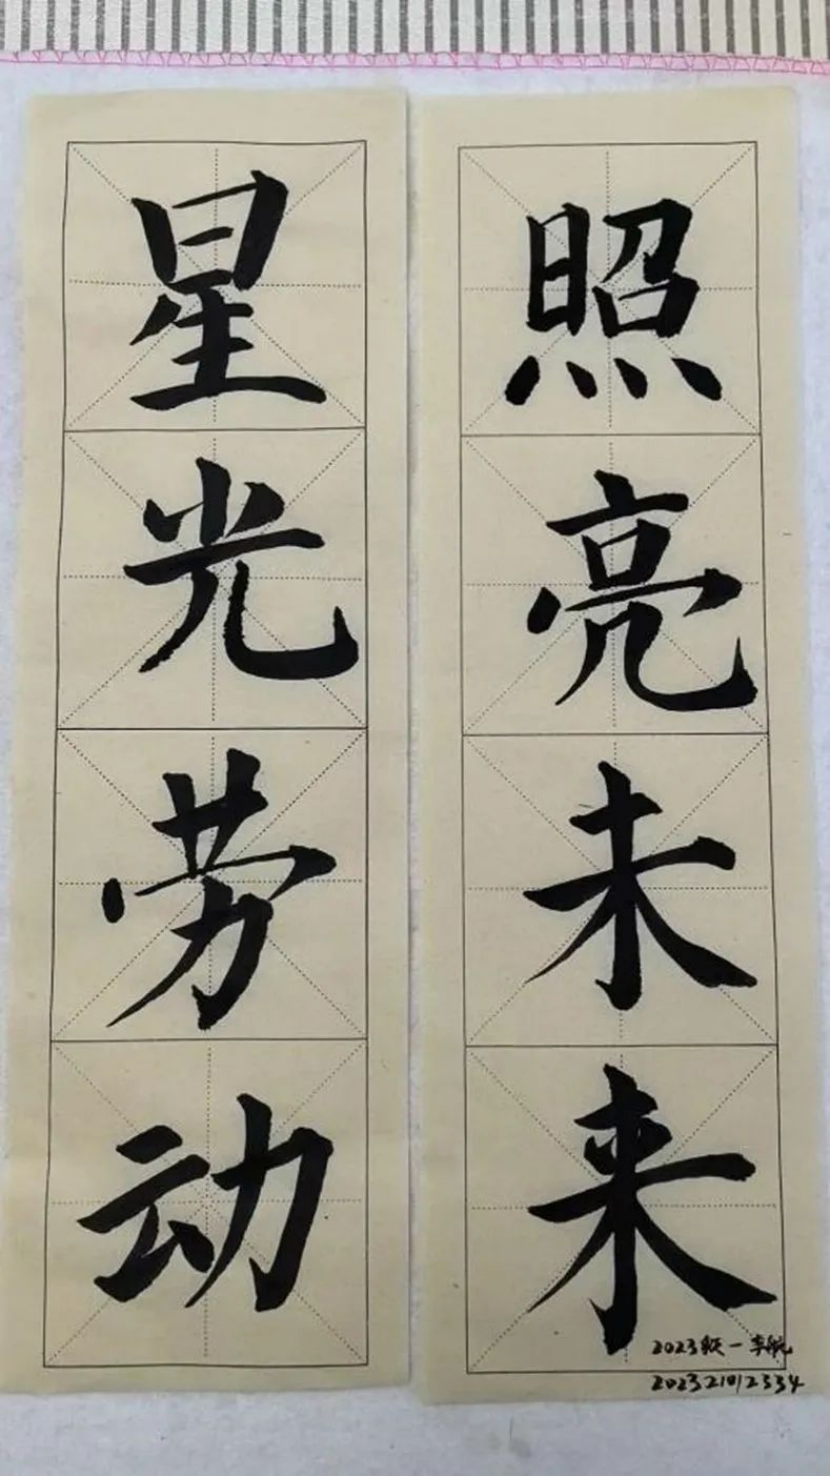 星光劳动
照亮未来
2023级一李航
202321012334